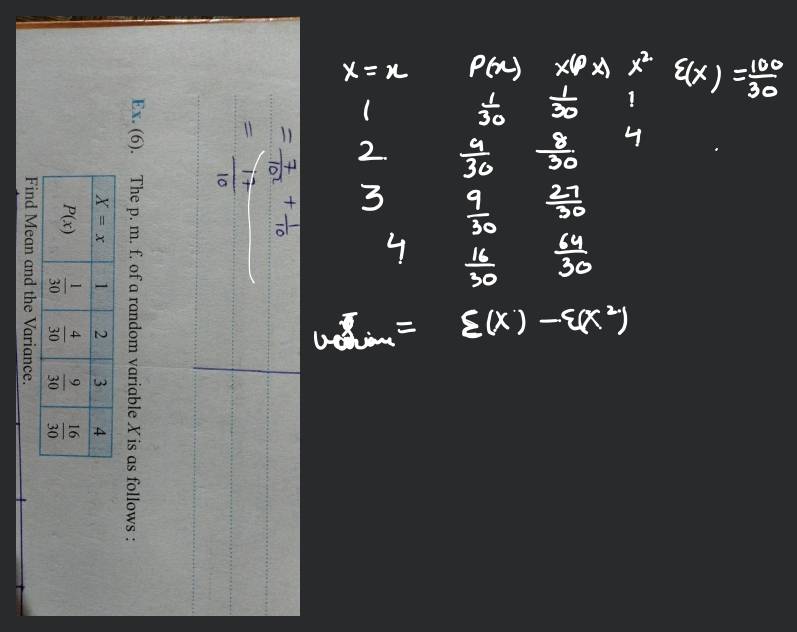 = 7/10² + 1/10
= 17/10
Ex. (6). The p. m. f. of a random variable X is as follows :
X = x 1 2 3 4
P(x) 1/30 4/30 9/30 16/30
Find Mean and the Variance.
X = x P(x) x(Px) x² Σ(x) = 100/30
1 1/30 1/30 1
2 4/30 8/30 4
3 9/30 27/30
4 16/30 64/30
= Σ(X) - Σ(X²)